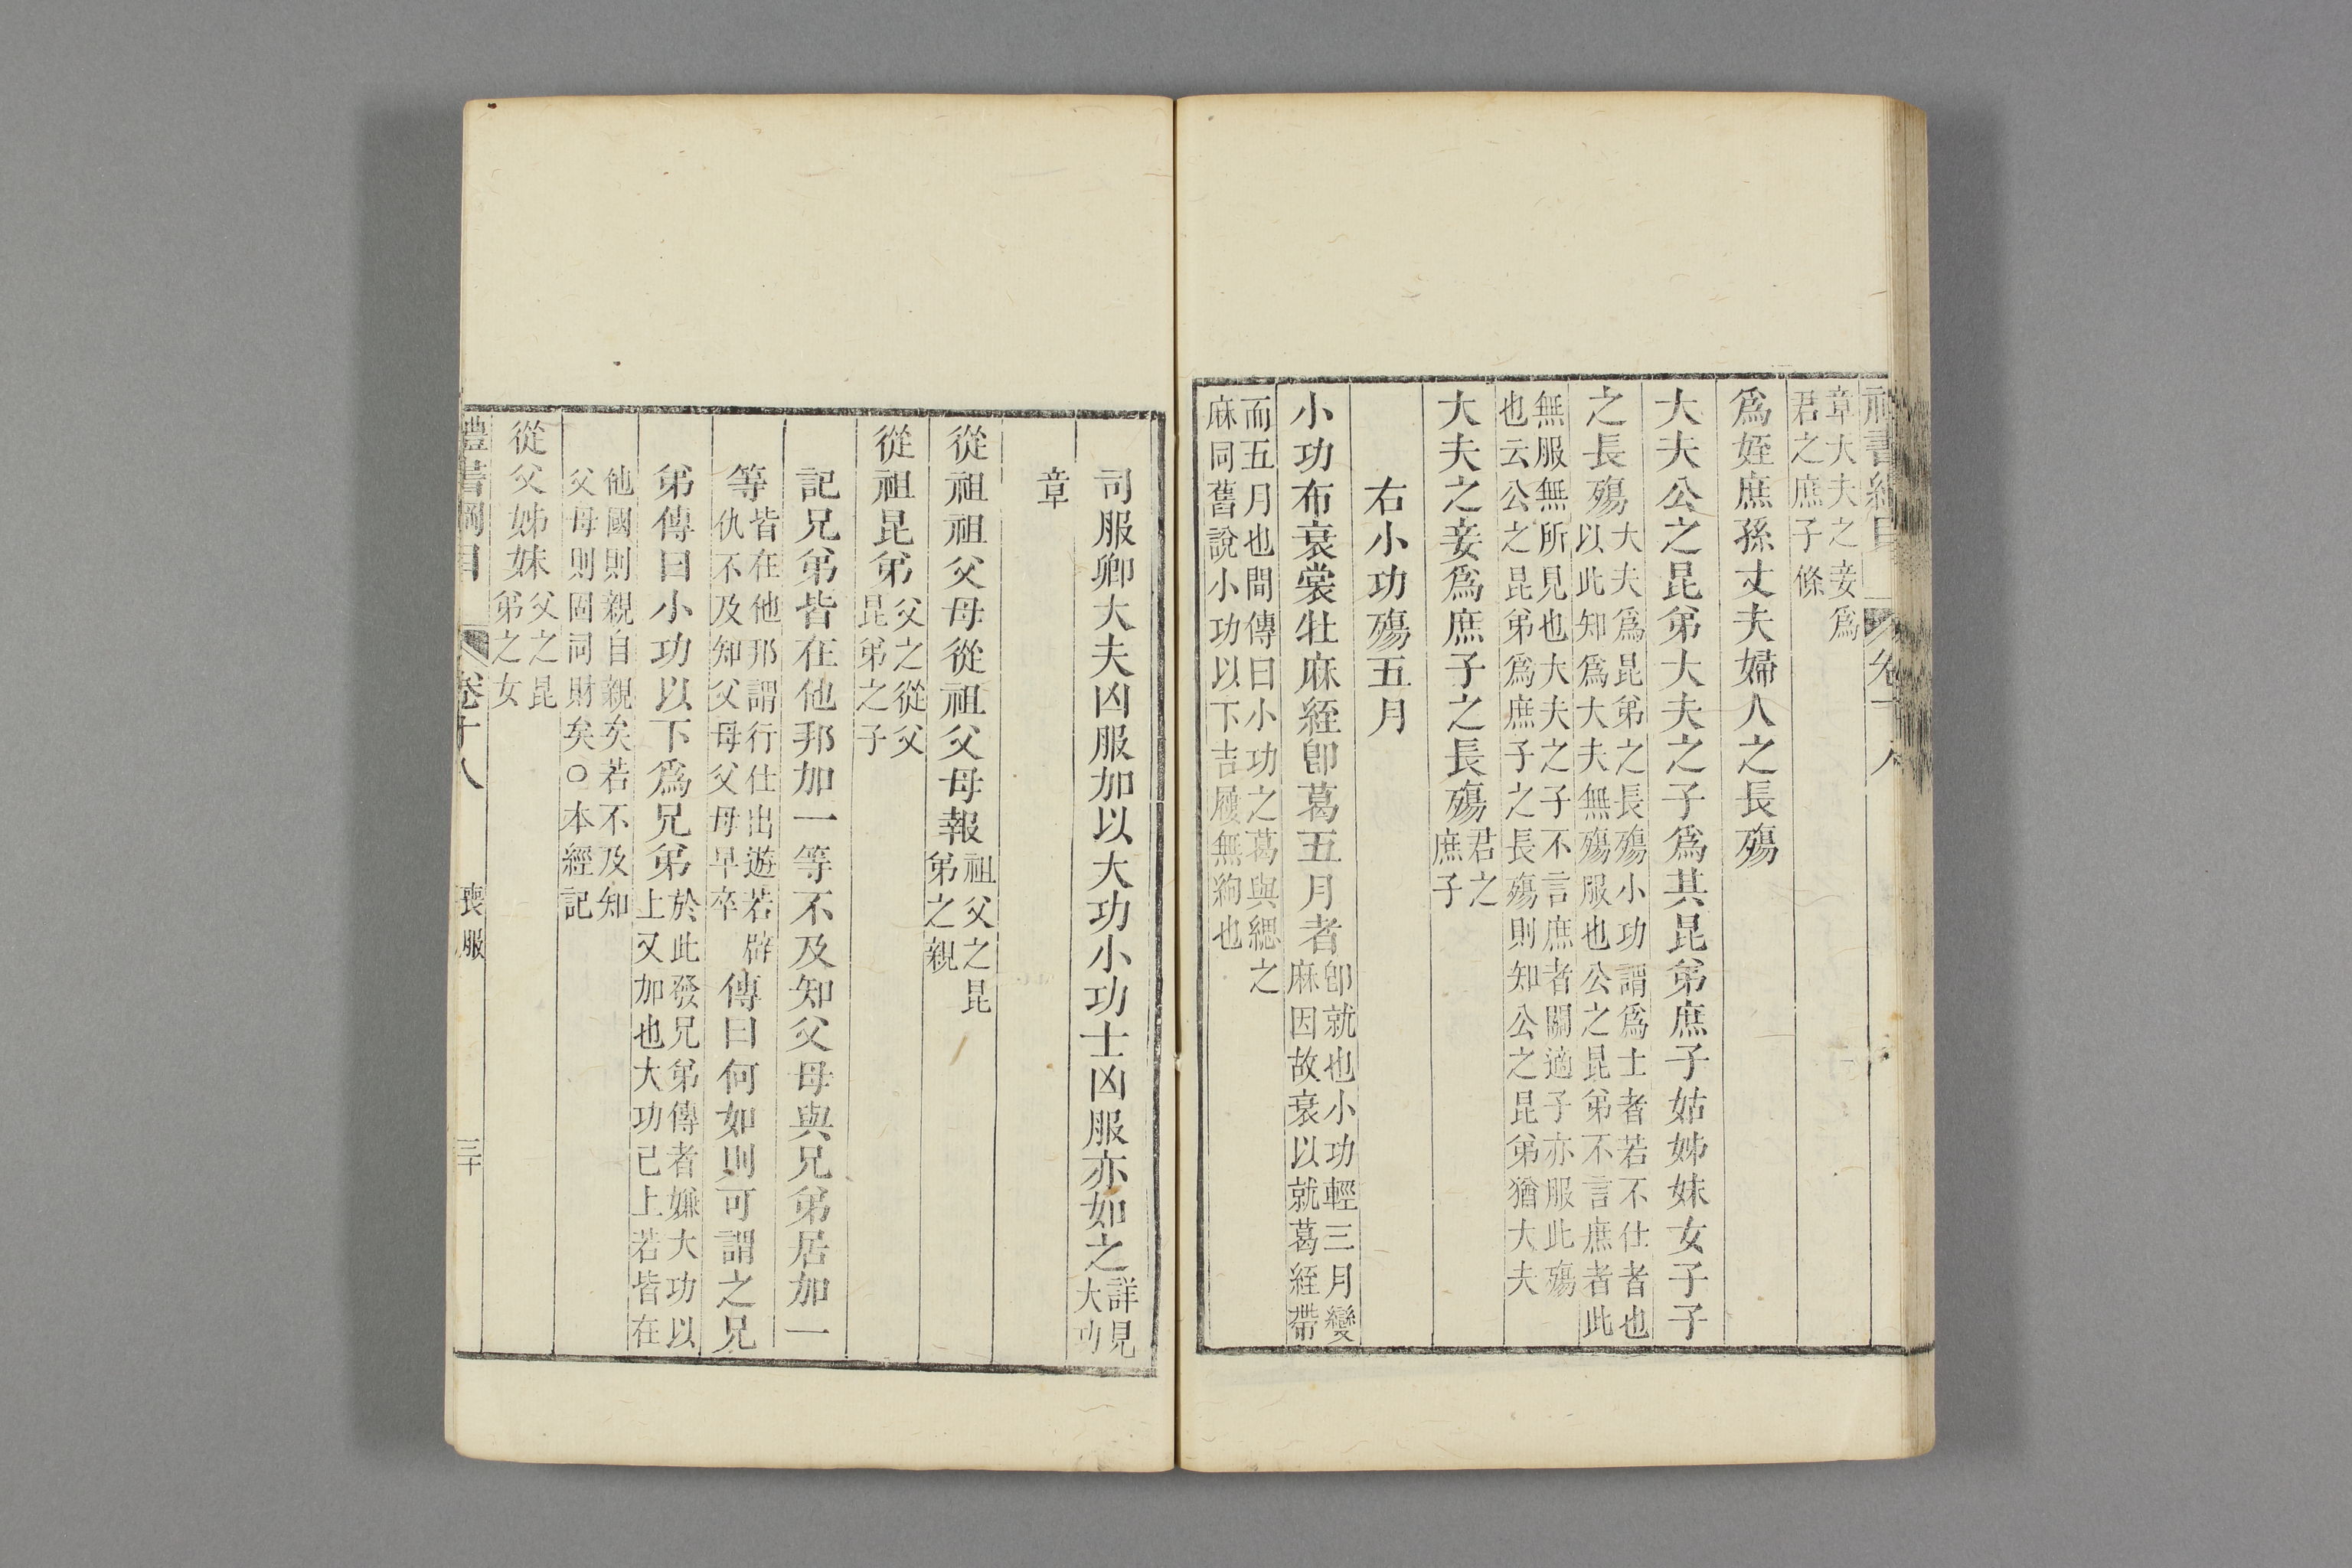 禮書綱目 卷十八
章大夫之妾爲
君之庶子條
爲姪庶孫丈夫婦人之長殤
大夫公之昆弟大夫之子爲其昆弟庶子姑姊妹女子子
之長殤大夫爲昆弟之長殤小功謂爲士者若不仕者也
以此知爲大夫無殤服也公之昆弟不言庶者此
無服無所見也大夫之子不言庶者關適子亦服此殤
也云公之昆弟爲庶子之長殤則知公之昆弟猶大夫
大夫之妾爲庶子之長殤君之
庶子
右小功殤五月
小功布衰裳牡麻絰卽葛五月者卽就也小功輕三月變
麻因故衰以就葛絰帶
而五月也間傳曰小功之葛與緦之
麻同舊說小功以下吉屨無絇也
司服卿大夫凶服加以大功小功士凶服亦如之詳見
大功
章
從祖祖父母從祖父母報祖父之昆
弟之親
從祖昆弟父之從父
昆弟之子
記兄弟皆在他邦加一等不及知父母與兄弟居加一
等皆在他邦謂行仕出遊若辟
仇不及知父母父母早卒
傳曰何如則可謂之兄
弟傳曰小功以下爲兄弟於此發兄弟傳者嫌大功以
上又加也大功已上若皆在
他國則親自親矣若不及知
父母則固同財矣○本經記
從父姊妹父之昆
弟之女
禮書綱目 卷十八 喪服 三十